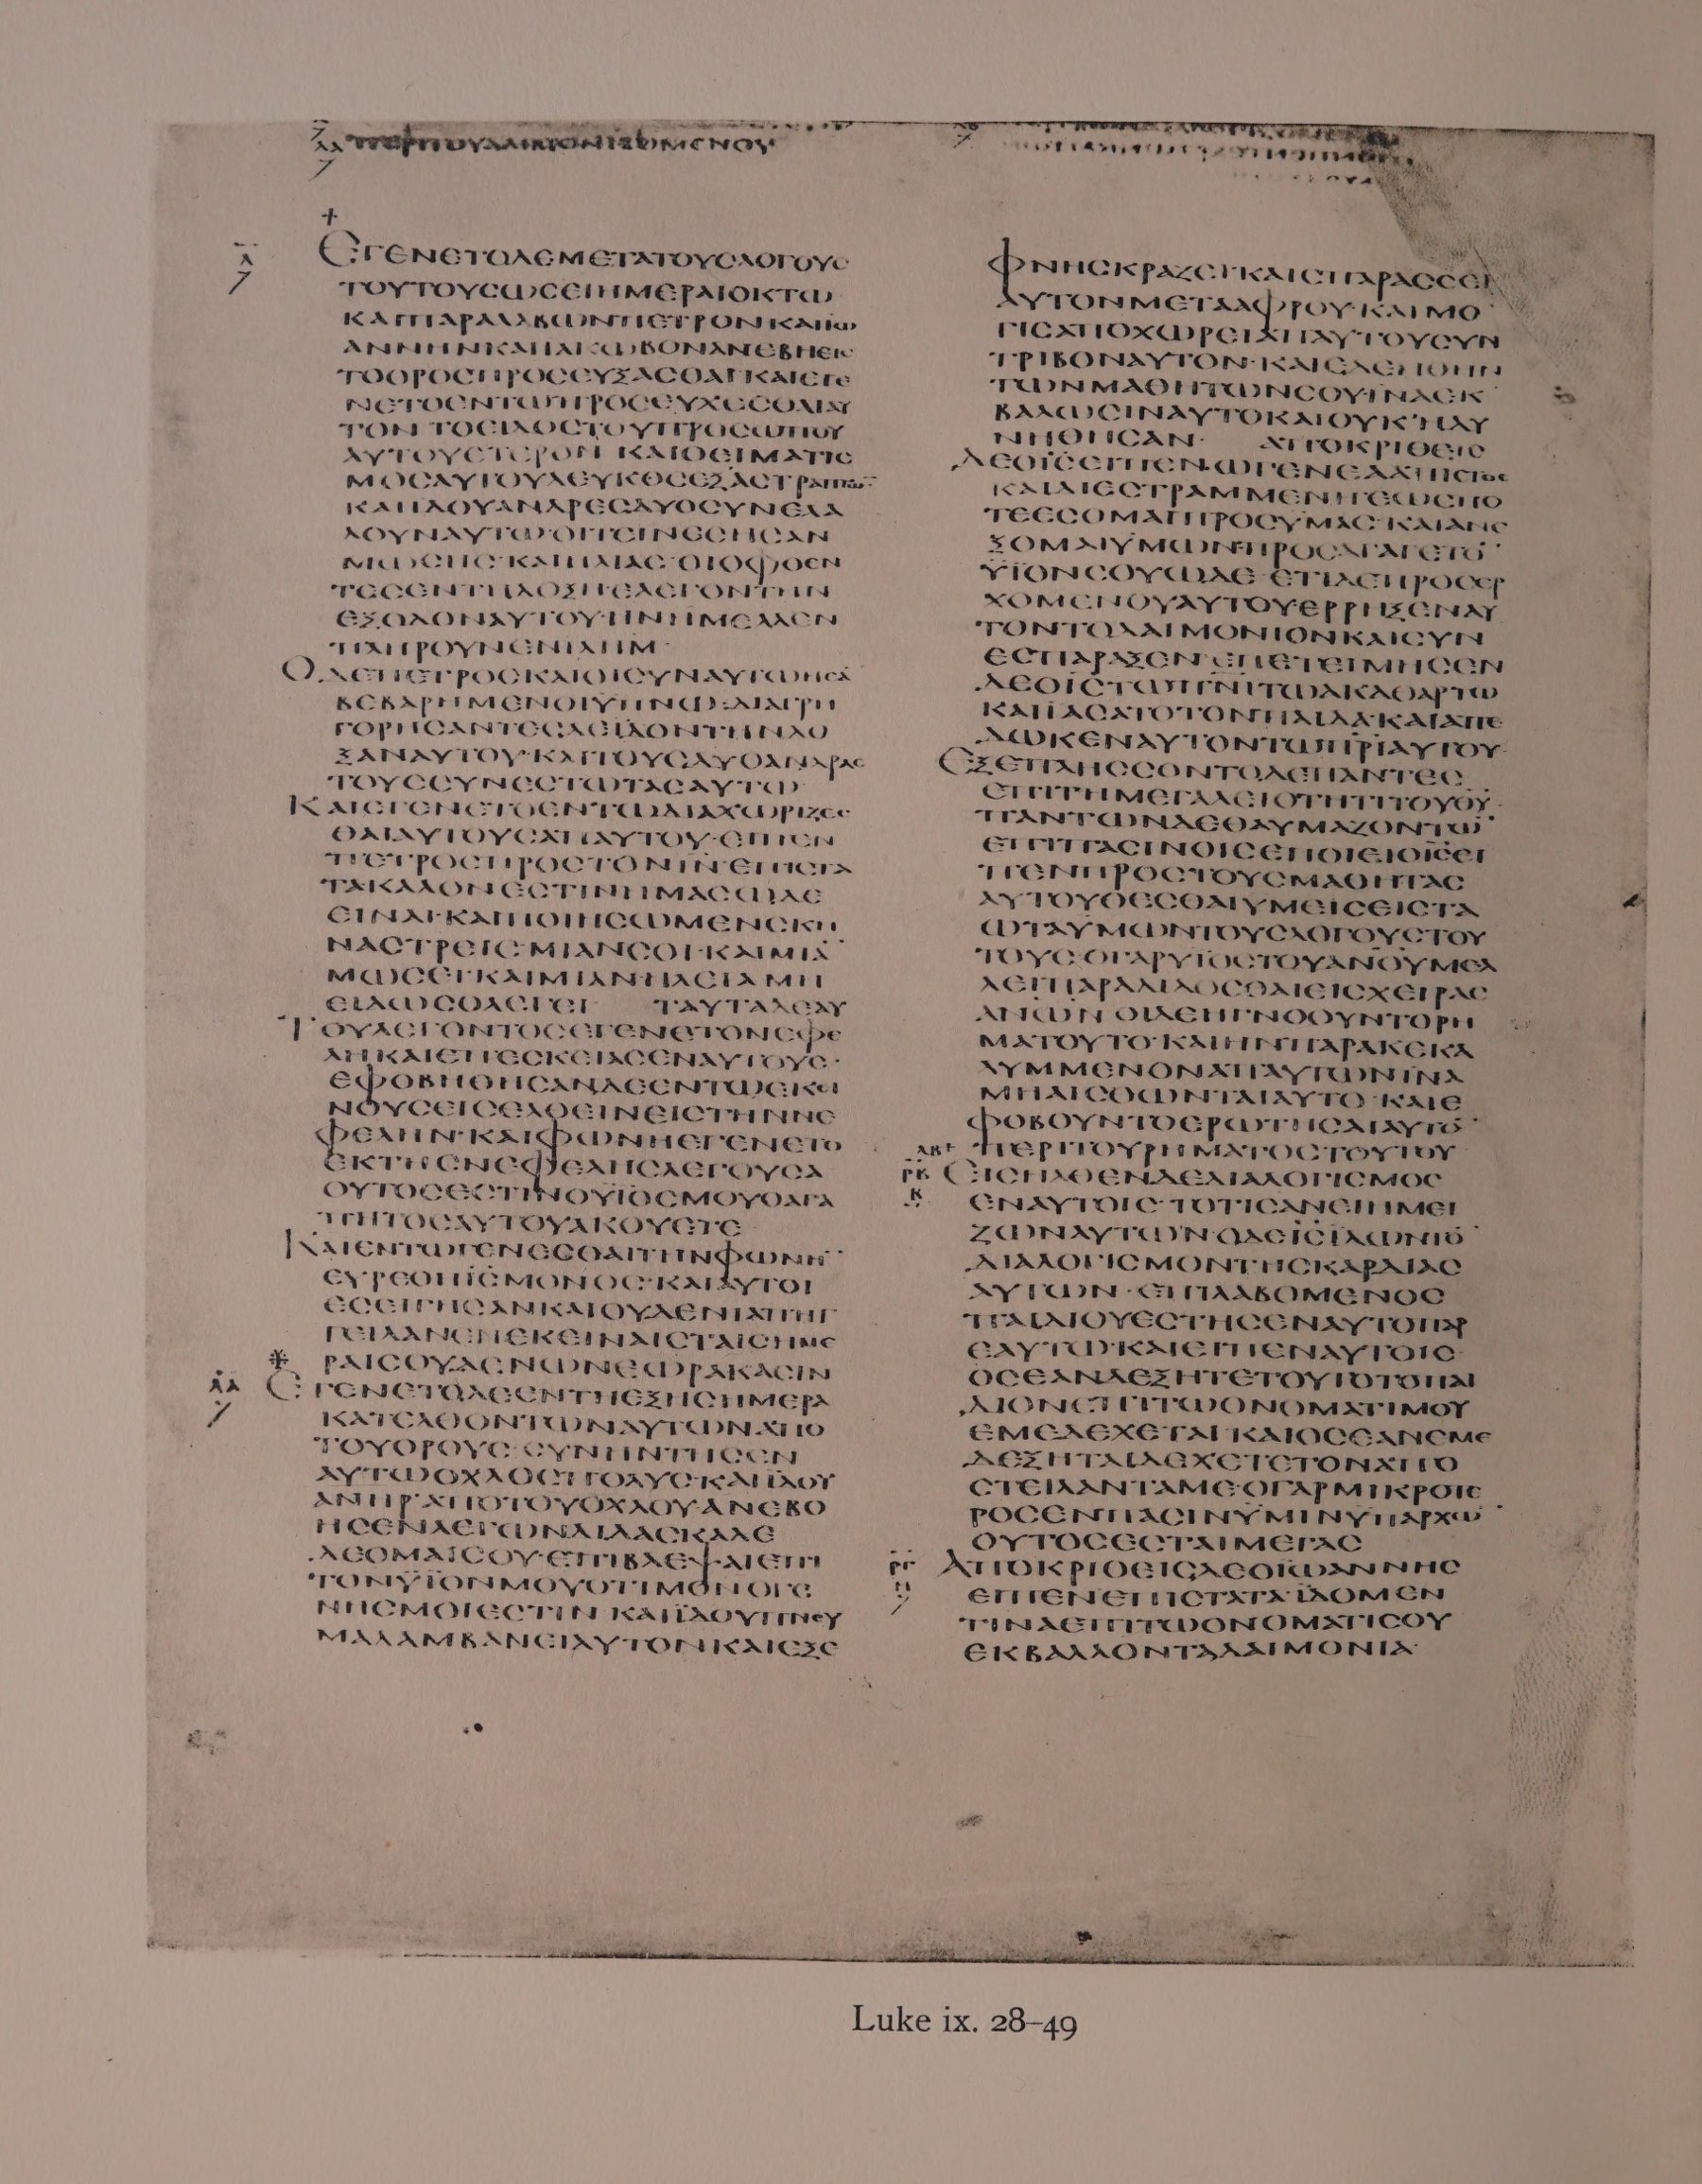 ΛΑ ΠΕΡΙ ΤΟΥ ϹΕΛΗΝΙΑΖΟΜΕΝΟΥ
ΕΓΕΝΕΤΟΔΕΜΕΤΑΤΟΥϹΛΟΓΟΥϹ
ΤΟΥΤΟΥϹΩϹΕΙΗΜΕΡΑΙΟΚΤΩ
ΚΑΙΠΑΡΑΛΑΒΩΝΠΕΤΡΟΝΚΑΙΙΩ
ΑΝΝΗΝΚΑΙΙΑΚΩΒΟΝΑΝΕΒΗΕΙϹ
ΤΟΟΡΟϹΠΡΟϹΕΥΞΑϹΘΑΙ·ΚΑΙΕΓΕ
ΝΕΤΟΕΝΤΩΠΡΟϹΕΥΧΕϹΘΑΙΑΥ
ΤΟΝ ΤΟΕΙΔΟϹΤΟΥΠΡΟϹΩΠΟΥ
ΑΥΤΟΥΕΤΕΡΟΝ ΚΑΙΟΕΙΜΑΤΙϹ
ΜΟϹΑΥΤΟΥΛΕΥΚΟϹΕΞΑϹΤΡΑΠΤΩ
ΚΑΙΙΔΟΥΑΝΔΡΕϹΔΥΟϹΥΝΕΛΑ
ΛΟΥΝΑΥΤΩ·ΟΙΤΕΙΝΕϹΗϹΑΝ
ΜΩϹΗϹ·ΚΑΙΗΛΙΑϹ·ΟΙΟΦΘΕΝ
ΤΕϹΕΝΤΗΔΟΞΗΕΛΕΓΟΝΤΗΝ
ΕΞΟΔΟΝΑΥΤΟΥ·ΗΝΗΜΕΛΛΕΝ
ΠΛΗΡΟΥΝΕΝΙΛΗΜ·
ΟΔΕΠΕΤΡΟϹΚΑΙΟΙϹΥΝΑΥΤΩΗϹΑ
ΒΕΒΑΡΗΜΕΝΟΙΥΠΝΩ·ΔΙΑΓΡΗ
ΓΟΡΗϹΑΝΤΕϹΔΕΪΔΟΝΤΗΝΔΟ
ΞΑΝΑΥΤΟΥ·ΚΑΙΤΟΥϹΔΥΟΑΝΔΡΑϹ
ΤΟΥϹϹΥΝΕϹΤΩΤΑϹΑΥΤΩ·
ΚΑΙΕΓΕΝΕΤΟΕΝΤΩΔΙΑΧΩΡΙΖΕϹ
ΘΑΙΑΥΤΟΥϹΑΠΑΥΤΟΥ·ΕΙΠΕΝ
ΠΕΤΡΟϹΠΡΟϹΤΟΝΙΝ·ΕΠΙϹΤΑ
ΤΑΚΑΛΟΝΕϹΤΙΝΗΜΑϹΩΔΕ
ΕΙΝΑΙ·ΚΑΙΠΟΙΗϹΩΜΕΝϹΚΗ
ΝΑϹΤΡΕΙϹ·ΜΙΑΝϹΟΙ·ΚΑΙΜΙΑ
ΜΩϹΕΙ·ΚΑΙΜΙΑΝΗΛΕΙΑ ΜΗ
ΕΙΔΩϹΟΛΕΓΕΙ· ΤΑΥΤΑΔΕΑΥ
ΤΟΥΛΕΓΟΝΤΟϹΕΓΕΝΕΤΟΝΕΦΕ
ΛΗΚΑΙΕΠΕϹΚΕΙΑϹΕΝΑΥΤΟΥϹ·
ΕΦΟΒΗΘΗϹΑΝΔΕΕΝΤΩΕΚΕΙ
ΝΟΥϹΕΙϹΕΛΘΕΙΝΕΙϹΤΗΝΝΕ
ΦΕΛΗΝ·ΚΑΙΦΩΝΗΕΓΕΝΕΤΟ
ΕΚΤΗϹΝΕΦΕΛΗϹΛΕΓΟΥϹΑ
ΟΥΤΟϹΕϹΤΙΝΟΥΪΟϹΜΟΥΟΑΓΑ
ΠΗΤΟϹΑΥΤΟΥΑΚΟΥΕΤΕ
ΚΑΙΕΝΤΩΓΕΝΕϹΘΑΙΤΗΝΦΩΝΗ
ΕΥΡΕΘΗΙϹΜΟΝΟϹ·ΚΑΙΑΥΤΟΙ
ΕϹΕΙΓΗϹΑΝΚΑΙΟΥΔΕΝΙΑΠΗΓ
ΓΕΙΛΑΝΕΝΕΚΕΙΝΑΙϹΤΑΙϹΗΜΕ
ΡΑΙϹΟΥΔΕΝΩΝΕΩΡΑΚΑϹΙΝ
ΛΑ ΕΓΕΝΕΤΟΔΕΕΝΤΗΕΞΗϹΗΜΕΡΑ
ΚΑΤΕΛΘΟΝΤΩΝΑΥΤΩΝΑΠΟ
ΤΟΥΟΡΟΥϹ·ϹΥΝΗΝΤΗϹΕΝ
ΑΥΤΩΟΧΛΟϹΠΟΛΥϹ·ΚΑΙΙΔΟΥ
ΑΝΗΡΑΠΟΤΟΥΟΧΛΟΥΑΝΕΒΟ
ΗϹΕΝΛΕΓΩΝΔΙΔΑϹΚΑΛΕ
ΔΕΟΜΑΙϹΟΥ·ΕΠΙΒΛΕΨΑΙΕΠΙ
ΤΟΝΥΪΟΝΜΟΥΟΤΙΜΟΝΟΓΕ
ΝΗϹΜΟΙΕϹΤΙΝ ΚΑΙΪΔΟΥΠΝΕΥ
ΜΑΛΑΜΒΑΝΕΙΑΥΤΟΝΚΑΙΕΞΕ
ΦΝΗϹΚΡΑΖΕΙ·ΚΑΙϹΠΑΡΑϹϹΕΙ
ΑΥΤΟΝΜΕΤΑΑΦΡΟΥ·ΚΑΙΜΟ
ΓΙϹΑΠΟΧΩΡΕΙΑΠΑΥΤΟΥϹΥΝ
ΤΡΙΒΟΝΑΥΤΟΝ·ΚΑΙΕΔΕΗΘΗΝ
ΤΩΝΜΑΘΗΤΩΝϹΟΥΪΝΑΕΚ
ΒΑΛΩϹΙΝΑΥΤΟΚΑΙΟΥΚΗΔΥ
ΝΗΘΗϹΑΝ· ΑΠΟΚΡΙΘΕΙϹ
ΔΕΟΙϹΕΙΠΕΝ·ΩΓΕΝΕΑΑΠΙϹΤΟϹ
ΚΑΙΔΙΕϹΤΡΑΜΜΕΝΗΕΩϹΠΟ
ΤΕΕϹΟΜΑΙΠΡΟϹΥΜΑϹ·ΚΑΙΑΝΕ
ΞΟΜΑΙΥΜΩΝ·ΠΡΟϹΑΓΑΓΕΤΟ
ΥΪΟΝϹΟΥΩΔΕ·ΕΤΙΔΕΠΡΟϹΕΡ
ΧΟΜΕΝΟΥΑΥΤΟΥΕΡΡΗΞΕΝΑΥ
ΤΟΝΤΟΔΑΙΜΟΝΙΟΝΚΑΙϹΥΝ
ΕϹΠΑΡΑΞΕΝ·ΕΠΕΤΕΙΜΗϹΕΝ
ΔΕΟΙϹΤΩΠΝΙΤΩΑΚΑΘΑΡΤΩ
ΚΑΙΪΑϹΑΤΟΤΟΝΠΑΙΔΑ·ΚΑΙΑΠΕ
ΔΩΚΕΝΑΥΤΟΝΤΩΠΡΙΑΥΤΟΥ·
ΕΞΕΠΛΗϹϹΟΝΤΟΔΕΠΑΝΤΕϹ
ΕΠΙΤΗΜΕΓΑΛΕΙΟΤΗΤΙΤΟΥΘΥ·
ΠΑΝΤΩΝΔΕΘΑΥΜΑΖΟΝΤΩ
ΕΠΙΠΑϹΙΝΟΙϹΕΠΟΙΕΙΟΙϹΕΙ
ΠΕΝΠΡΟϹΤΟΥϹΜΑΘΗΤΑϹ
ΑΥΤΟΥΘΕϹΘΑΙΥΜΕΙϹΕΙϹΤΑ
ΩΤΑΥΜΩΝΤΟΥϹΛΟΓΟΥϹΤΟΥ
ΤΟΥϹ·ΟΓΑΡΥΙΟϹΤΟΥΑΝΟΥΜΕΛ
ΛΕΙΠΑΡΑΔΙΔΟϹΘΑΙΕΙϹΧΕΙΡΑϹ
ΑΝΩΝ ΟΙΔΕΗΓΝΟΟΥΝΤΟΡΗ
ΜΑΤΟΥΤΟ·ΚΑΙΗΝΠΑΡΑΚΕΚΑ
ΛΥΜΜΕΝΟΝΑΠΑΥΤΩΝΙΝΑ
ΜΗΑΙϹΘΩΝΤΑΙΑΥΤΟ·ΚΑΙΕ
ΦΟΒΟΥΝΤΟΕΡΩΤΗϹΑΙΑΥΤΟ
ΠΕΡΙΤΟΥΡΗΜΑΤΟϹΤΟΥΤΟΥ
ΕΙϹΗΛΘΕΝΔΕΔΙΑΛΟΓΙϹΜΟϹ
ΕΝΑΥΤΟΙϹ·ΤΟΤΙϹΑΝΕΙΗΜΕΙ
ΖΩΝΑΥΤΩΝ·ΟΔΕΙϹΪΔΩΝΤΟ
ΔΙΑΛΟΓΙϹΜΟΝΤΗϹΚΑΡΔΙΑϹ
ΑΥΤΩΝ·ΕΠΙΛΑΒΟΜΕΝΟϹ
ΠΑΙΔΙΟΥΕϹΤΗϹΕΝΑΥΤΟΠΑΡ
ΕΑΥΤΩ·ΚΑΙΕΙΠΕΝΑΥΤΟΙϹ·
ΟϹΕΑΝΔΕΞΗΤΕΤΟΥΤΟΤΟΠΑΙ
ΔΙΟΝΕΠΙΤΩΟΝΟΜΑΤΙΜΟΥ
ΕΜΕΔΕΧΕΤΑΙ·ΚΑΙΟϹΕΑΝΕΜΕ
ΔΕΞΗΤΑΙΔΕΧΕΤΕΤΟΝΑΠΟ
ϹΤΕΙΛΑΝΤΑΜΕ·ΟΓΑΡΜΙΚΡΟΤΕ
ΡΟϹΕΝΠΑϹΙΝΥΜΙΝΥΠΑΡΧΩ
ΟΥΤΟϹΕϹΤΑΙΜΕΓΑϹ
ΑΠΟΚΡΙΘΕΙϹΔΕΟΪΩΑΝΝΗϹ
ΕΙΠΕΝΕΠΙϹΤΑΤΑ·ΪΔΟΜΕΝ
ΤΙΝΑΕΠΙΤΩΟΝΟΜΑΤΙϹΟΥ
ΕΚΒΑΛΛΟΝΤΑΔΑΙΜΟΝΙΑ·
Luke ix. 28–49